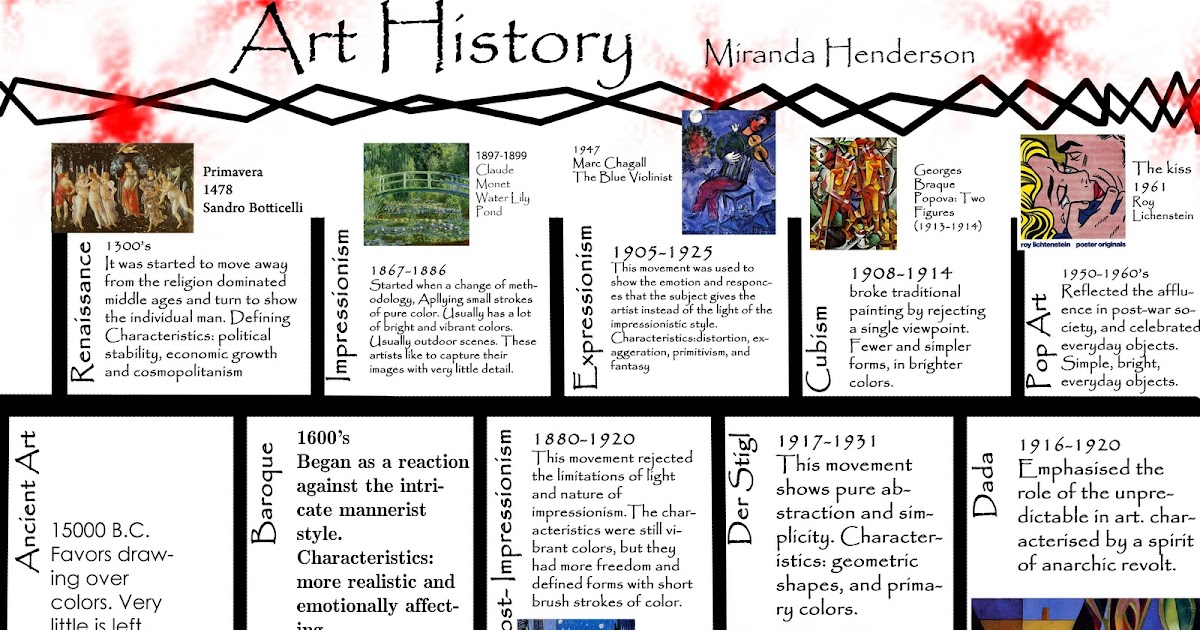 Art History
Miranda Henderson
Primavera
1478
Sandro Botticelli
Renaissance
1300's
It was started to move away
from the religion dominated
middle ages and turn to show
the individual man. Defining
Characteristics: political
stability, economic growth
and cosmopolitanism
1897-1899
Claude
Monet
Water Lily
Pond
Impressionism
1867-1886
Started when a change of meth-
odology, Apllying small strokes
of pure color. Usually has a lot
of bright and vibrant colors.
Usually outdoor scenes. These
artists like to capture their
images with very little detail.
1947
Marc Chagall
The Blue Violinist
Expressionism
1905-1925
This movement was used to
show the emotion and responc-
es that the subject gives the
artist instead of the light of the
impressionistic style.
Characteristics:distortion, ex-
aggeration, primitivism, and
fantasy
Georges
Braque
Popova: Two
Figures
(1913-1914)
Cubism
1908-1914
broke traditional
painting by rejecting
a single viewpoint.
Fewer and simpler
forms, in brighter
colors.
The kiss
1961
Roy
Lichenstein
roy lichtenstein poster originals
Pop Art
1950-1960's
Reflected the afflu-
ence in post-war so-
ciety, and celebrated
everyday objects.
Simple, bright,
everyday objects.
Ancient Art
15000 B.C.
Favors draw-
ing over
colors. Very
little is left
Baroque
1600's
Began as a reaction
against the intri-
cate mannerist
style.
Characteristics:
more realistic and
emotionally affect-
ing
ost- Impressionism
1880-1920
This movement rejected
the limitations of light
and nature of
impressionism.The char-
acteristics were still vi-
brant colors, but they
had more freedom and
defined forms with short
brush strokes of color.
Der Stigl
1917-1931
This movement
shows pure ab-
straction and sim-
plicity. Character-
istics: geometric
shapes, and prima-
ry colors.
Dada
1916-1920
Emphasised the
role of the unpre-
dictable in art. char-
acterised by a spirit
of anarchic revolt.